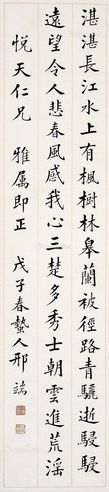 湛湛長江水上有楓樹林皋蘭被徑路青驪逝駸駸
遠望令人悲春風感我心三楚多秀士朝雲進荒淫
悦天仁兄 雅属即正 戊子春蟄人邢端